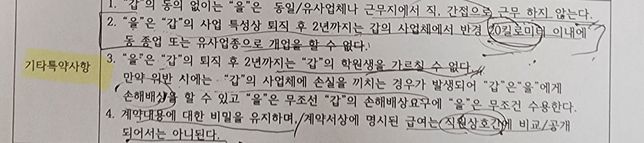 1. "갑"의 동의 없이는 "을"은 동일/유사업체나 근무지에서 직, 간접으로 근무 하지 않는다.
2. "을"은 "갑"의 사업 특성상 퇴직 후 2년까지는 갑의 사업체에서 반경 20킬로미터 이내에
동 종업 또는 유사업종으로 개업을 할 수 없다.
기타특약사항
3. "을"은 "갑"의 퇴직 후 2년까지는 "갑"의 학원생을 가르칠 수 없다.
만약 위반 시에는 "갑"의 사업체에 손실을 끼치는 경우가 발생되어 "갑"은"을"에게
손해배상을 할 수 있고 "을"은 무조선 "갑"의 손해배상요구에 "을"은 무조건 수용한다.
4. 계약내용에 대한 비밀을 유지하며, 계약서상에 명시된 급여는 직원상호간에 비교/공개
되어서는 아니된다.